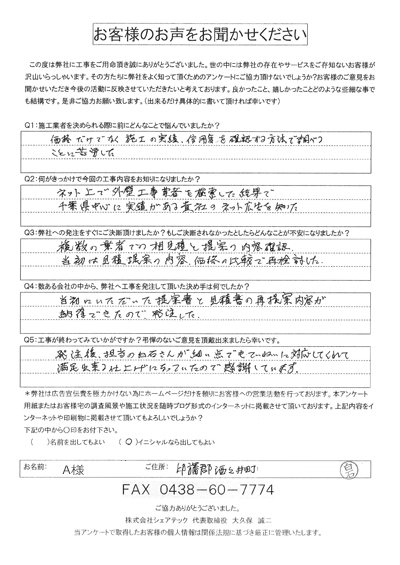 お客様のお声をお聞かせください
この度は弊社に工事をご用命頂き誠にありがとうございました。世の中には弊社の存在やサービスをご存知ないお客様が
沢山いらっしゃいます。その方たちに弊社をよく知って頂くためのアンケートにご協力頂けないでしょうか?お客様のご意見をお
聞かせいただき今後の活動に反映させていただきたいと考えております。良かったこと、嬉しかったことどのような些細な事で
も結構です。是非ご協力お願い致します。（出来るだけ具体的に書いて頂ければ幸いです）
Q1:施工業者を決められる際に前にどんなことで悩んでいましたか?
価格だけでなく施工の実績、信用等を確認する方法で調べる
ことに苦労した
Q2:何がきっかけで今回の工事内容をお知りになりましたか?
ネット上で外壁工事業者を検索した結果で
千葉県中心に実績がある貴社のネット広告を知った
Q3:弊社への発注をすぐにご決断頂けましたか?もしご決断されなかったとしたらどんなことが不安になりましたか?
複数の業者での相見積と提案の内容確認
当初は見積提案の内容、価格の比較で再検討した。
Q4:数ある会社の中から、弊社へ工事を発注して頂いた決め手は何でしたか?
当初にいただいた提案書と見積書の再提案内容が
納得できたので発注した。
Q5:工事が終わってみていかがですか?忌憚のないご意見を頂戴出来ましたら幸いです。
発注後、担当の白石さんが細い点までていねいに対応してくれて
満足出来る仕上げになっていたので感謝しています。
＊弊社は広告宣伝費を極力かけない為にホームページだけを頼りにお客様への営業活動を行っております。本アンケート
用紙またはお客様宅の調査風景や施工状況を随時ブログ形式のインターネットに掲載させて頂いております。上記内容をイ
ンターネットや印刷物に掲載させて頂いてもよろしいでしょうか?
下記の中から〇印をお付下さい。
（　）名前を出してもよい （〇）イニシャルなら出してもよい
お名前: A様 ご住所: 印旛郡酒々井町
FAX 0438-60-7774
ご協力ありがとうございました。
株式会社シェアテック 代表取締役 大久保 誠二
当アンケートで取得したお客様の個人情報は関係法規に基づき厳正に管理いたします。